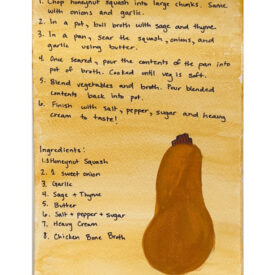 1. Chop honeynut squash into large chunks. Same
with onions and garlic.
2. In a pot, boil broth with sage and thyme.
3. In a pan, sear the squash, onions, and
garlic using butter.
4. Once seared, pour the contents of the pan into
pot of broth. Cooked until veg is soft.
5. Blend vegetables and broth. Pour blended
contents back into pot.
6. Finish with salt, pepper, sugar and heavy
cream to taste!
Ingredients:
1. Honeynut Squash
2. 1 sweet onion
3. Garlic
4. Sage + Thyme
5. Butter
6. Salt + pepper + sugar
7. Heavy Cream
8. Chicken Bone Broth